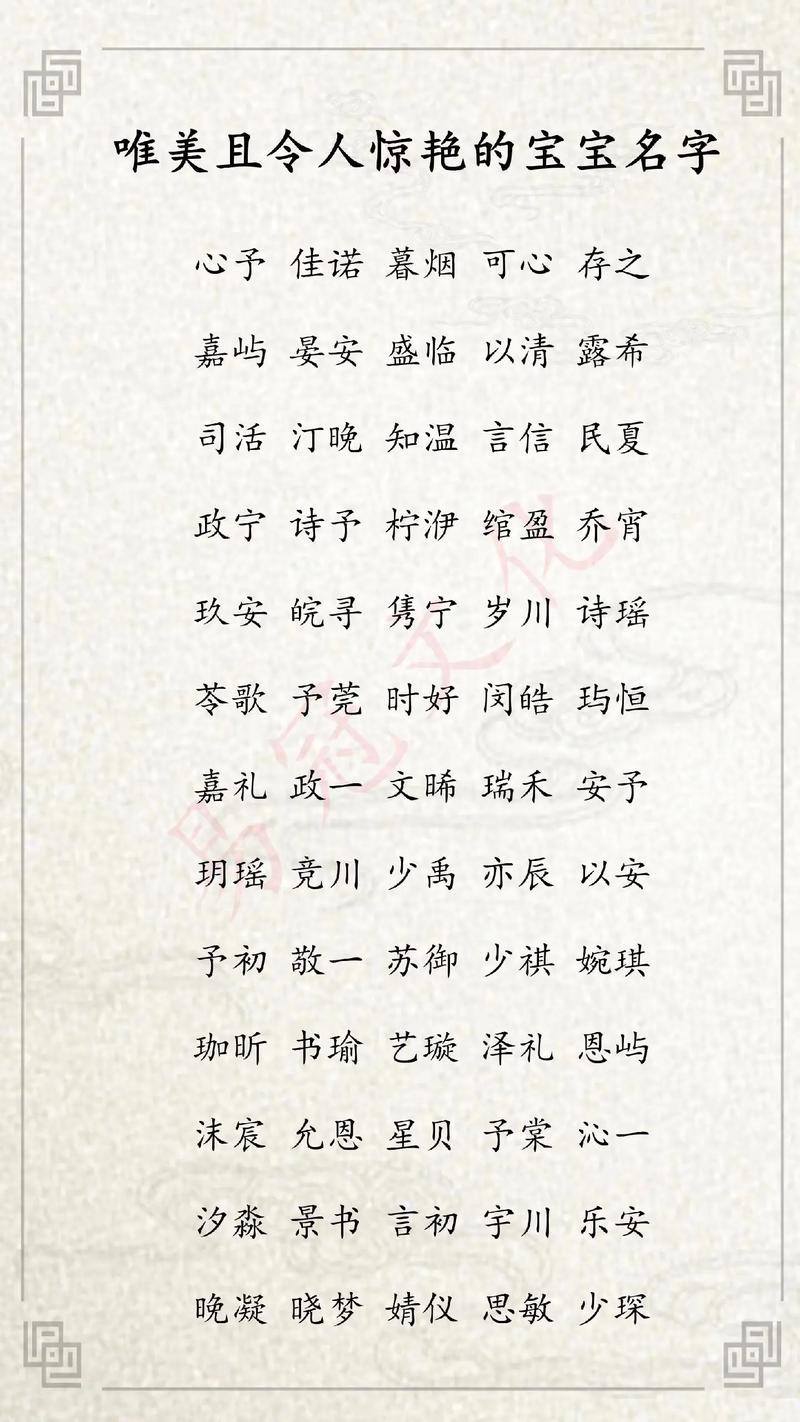 唯美且令人惊艳的宝宝名字
心予 佳诺 暮烟 可心 存之
嘉屿 晏安 盛临 以清 露希
司活 汀晚 知温 言信 民夏
政宁 诗予 柠洢 绾盈 乔宵
玖安 皖寻 隽宁 岁川 诗瑶
苓歌 予莞 时好 闵皓 玙恒
嘉礼 政一 文晞 瑞禾 安予
玥瑶 竞川 少禹 亦辰 以安
予初 敬一 苏御 少祺 婉琪
珈昕 书瑜 艺璇 泽礼 恩屿
沫宸 允恩 星贝 予棠 沁一
汐淼 景书 言初 宇川 乐安
晚凝 晓梦 婧仪 思敏 少琛
易冠文化